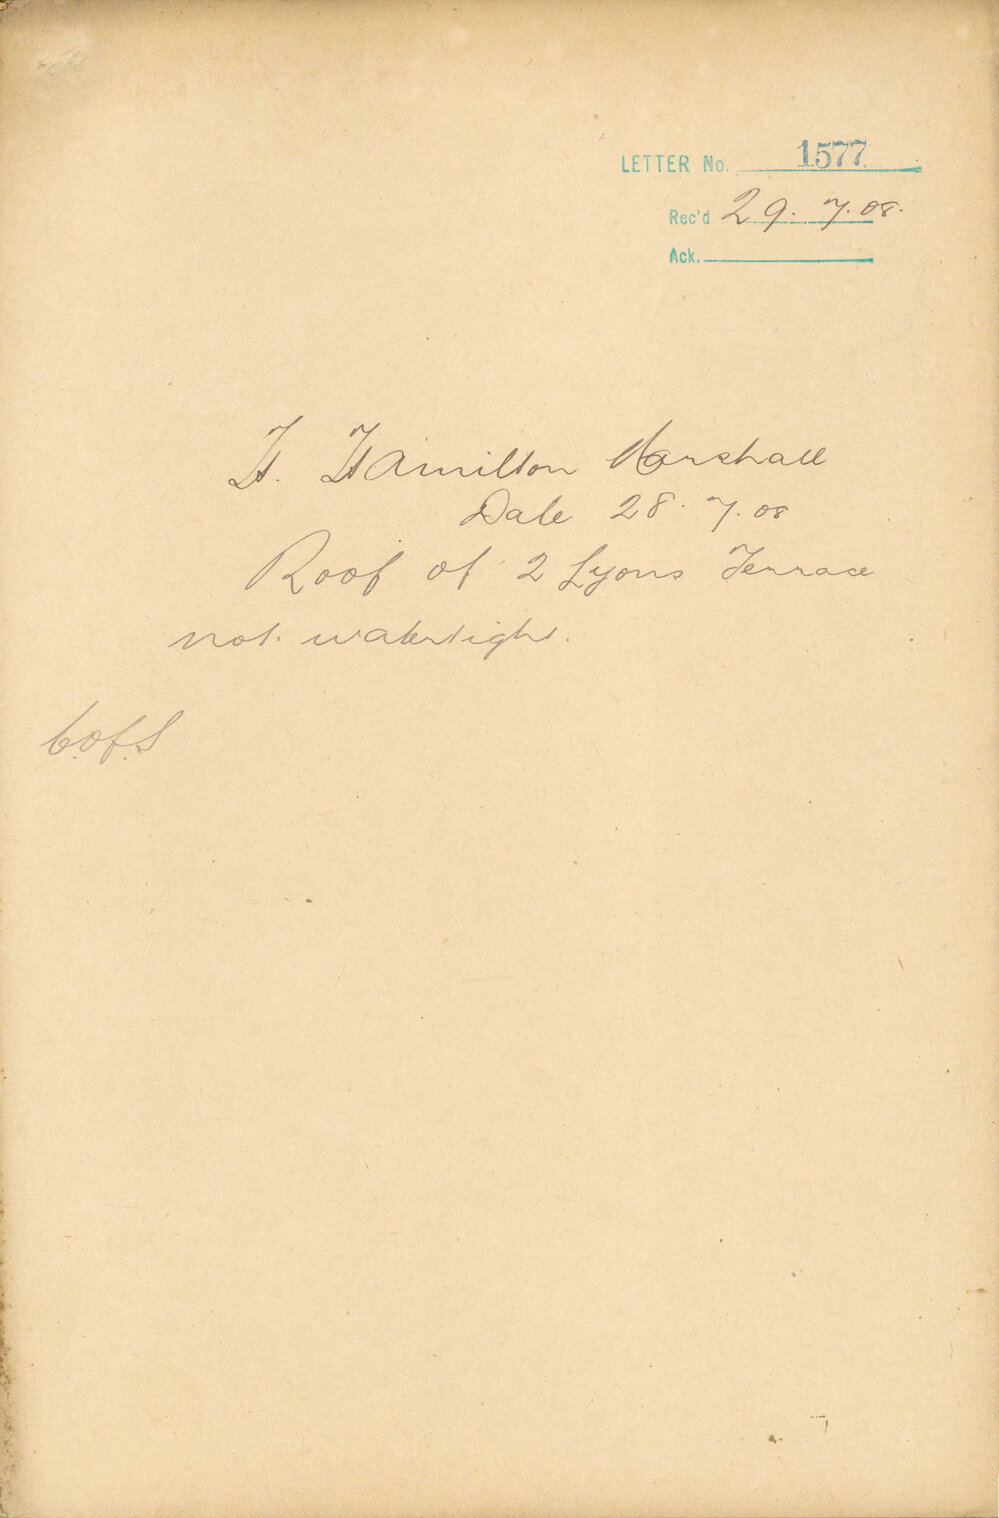 LETTER No. 1577
Rec'd 29. 7. 08.
Ack.
H. Hamilton Marshall
Date 28. 7. 08
Roof of 2 Lyons Terrace
not watertight.
C. of. S